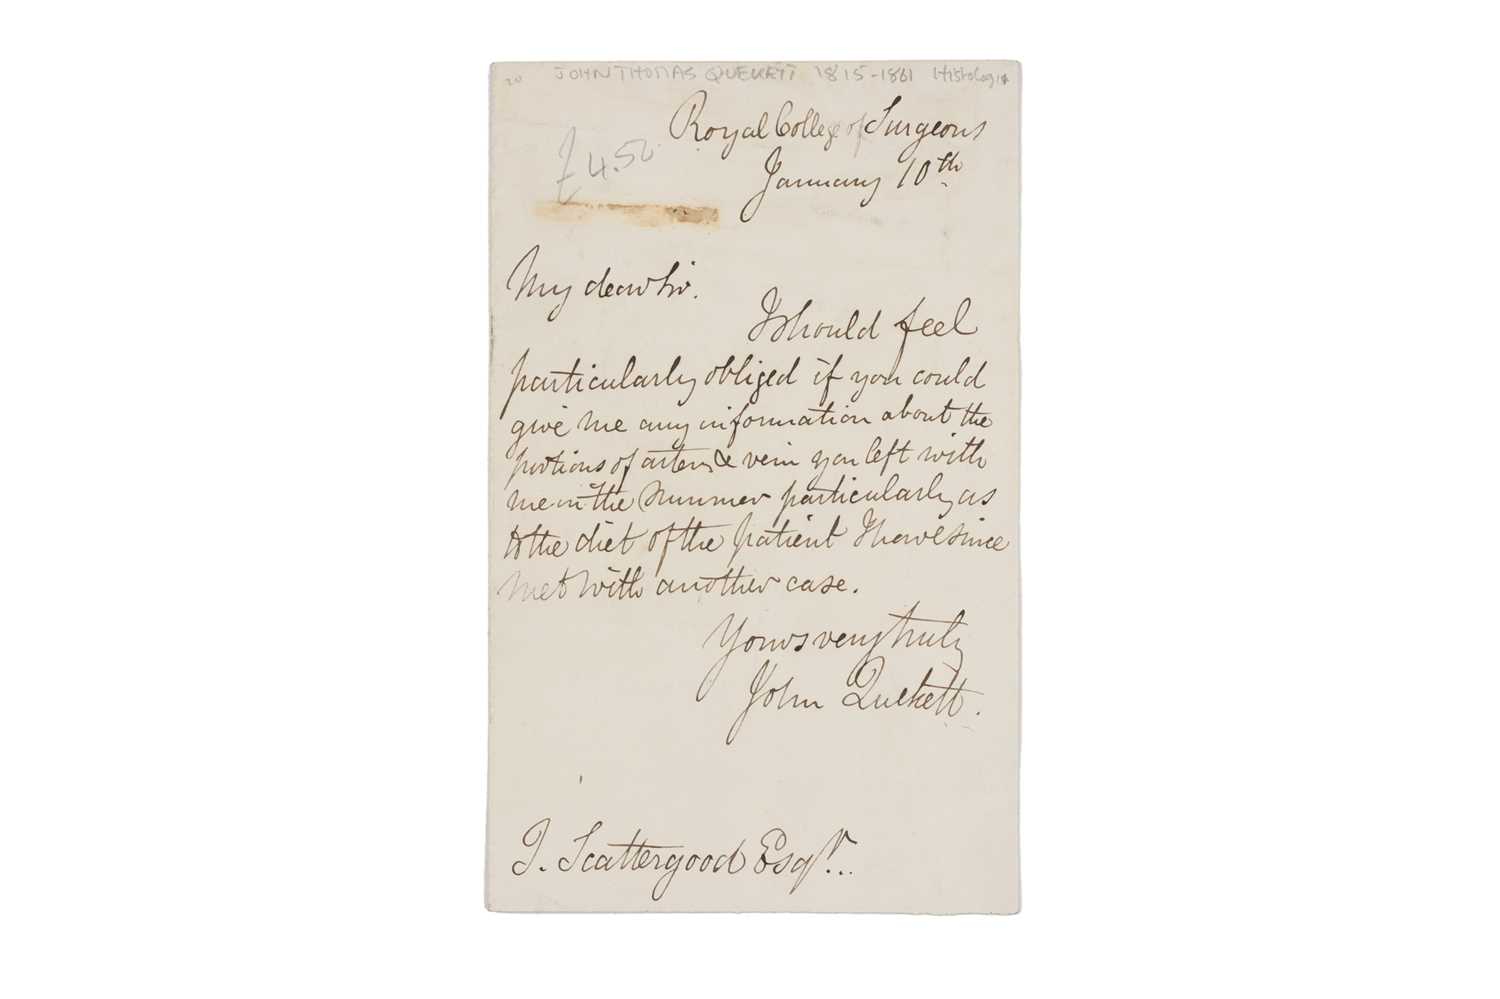 20 JOHN THOMAS QUEKETT 1815-1861 Histologist
Royal College of Surgeons
£4.50
January 10th
My dear Sir.
I should feel
particularly obliged if you could
give me any information about the
portions of artery & vein you left with
me in the Summer particularly as
to the diet of the patient I have since
met with another case.
Yours very truly
John Quekett.
T. Scattergood Esqr...